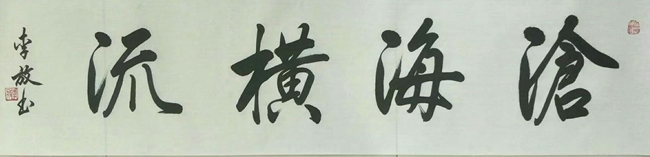 滄海橫流
李放書